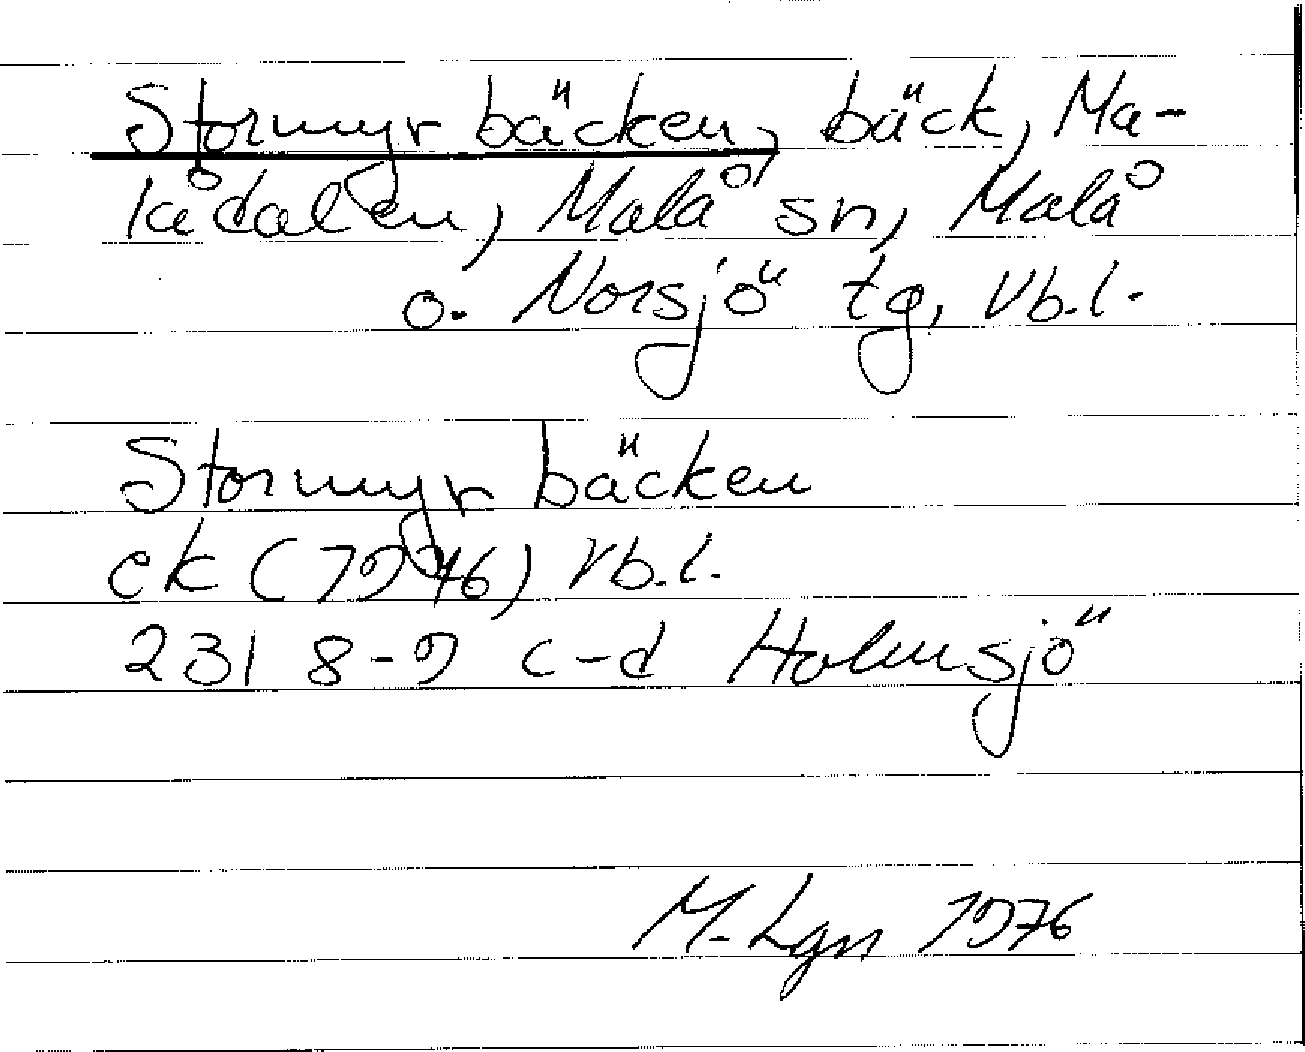 Stormyrbäcken, bäck, Ma-
kådalen, Malå sn, Malå
o. Norsjö tg, Vb.l.
Stormyrbäcken
ek (1976) Vb.l.
231 8-9 c-d Holmsjö
M. Lgn 1976